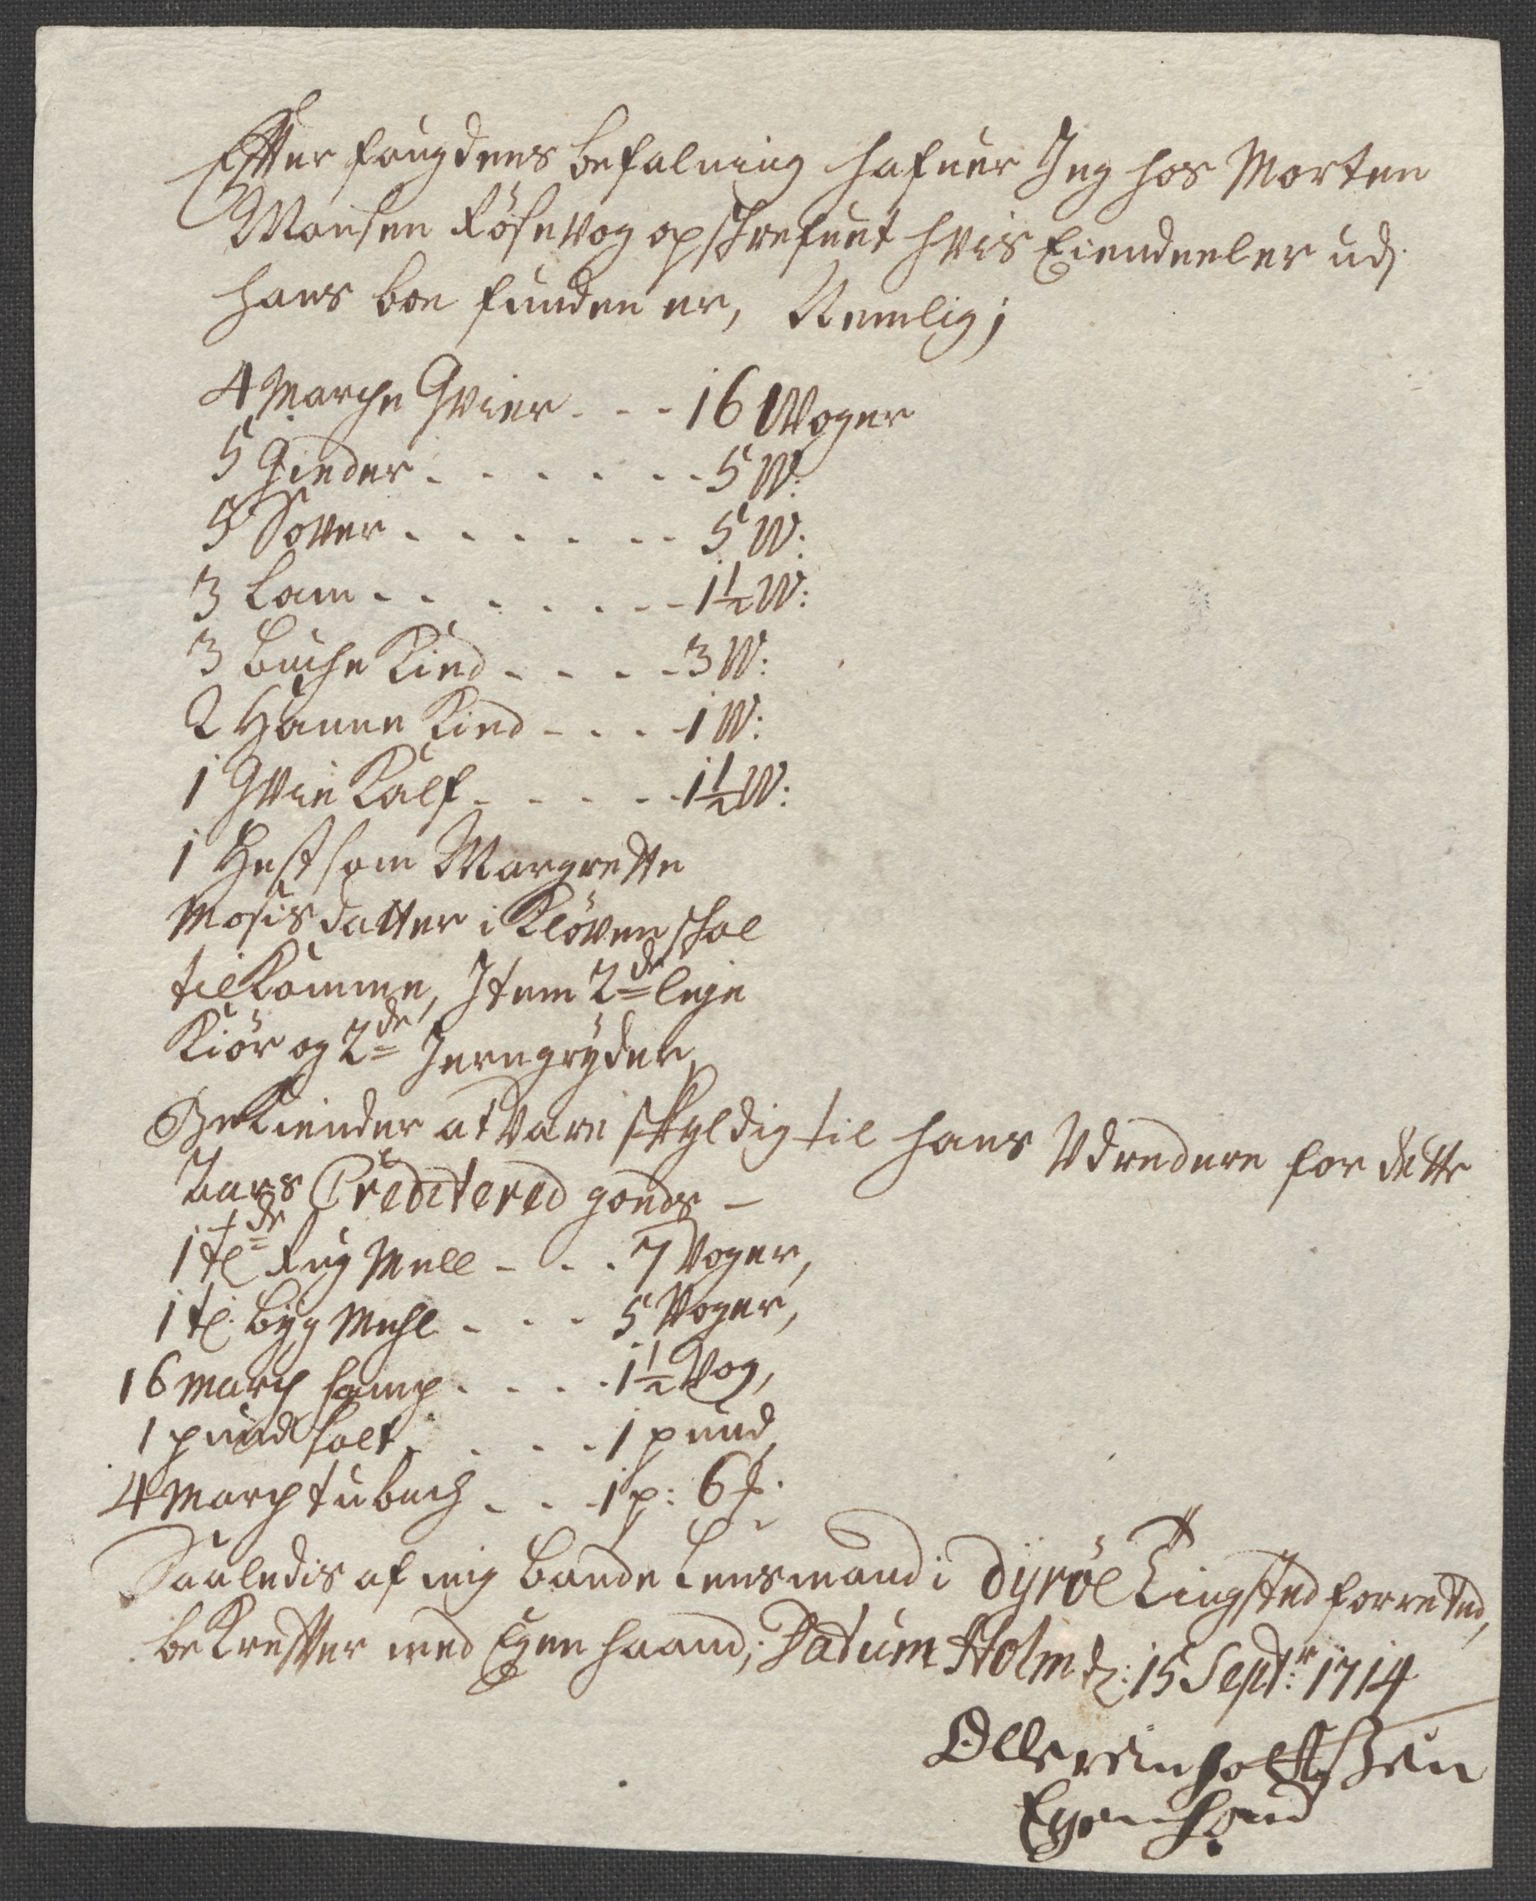 Efter fougdens befalning hafuer Jeg hos Morten
Monsen Rösevog opskrefuet hvis Eiendeeler udj
hans boe funden er, Nemlig;
4 Marche Qvier . . . 16 Woger
5 Gieder . . . . . . . 5 W:
5 Sover . . . . . . . 5 W:
3 Lam . . . . . . . . 1½ W:
3 Buche Kied . . . . 3 W:
2 Haune Kied . . . . 1 W:
1 Qvie Kalf . . . . . 1½ W:
1 Hest som Margrette
Mosisdatter i Kløven skal
tilkomme, Item 2de leje
Kiør og 2de Jerngryder
Bekiender at vare skyldig til hans Udredere for dette
Aars Creditered goeds –
1 td Rug Mell . . . 7 Voger,
1 t. byg Mehl . . . . 5 Voger,
16 March hamp . . . . 1½ Vog,
1 pund salt . . . . . 1 pund
4 March tubach . . . 1 p: 6 .
Saaledis af mig bonde Lensmand i Dyröe Tingsted forretted,
bekrefter med Egen haand; Datum Holm d: 15 Septr: 1714
Olle reinholtsen
Egen hand